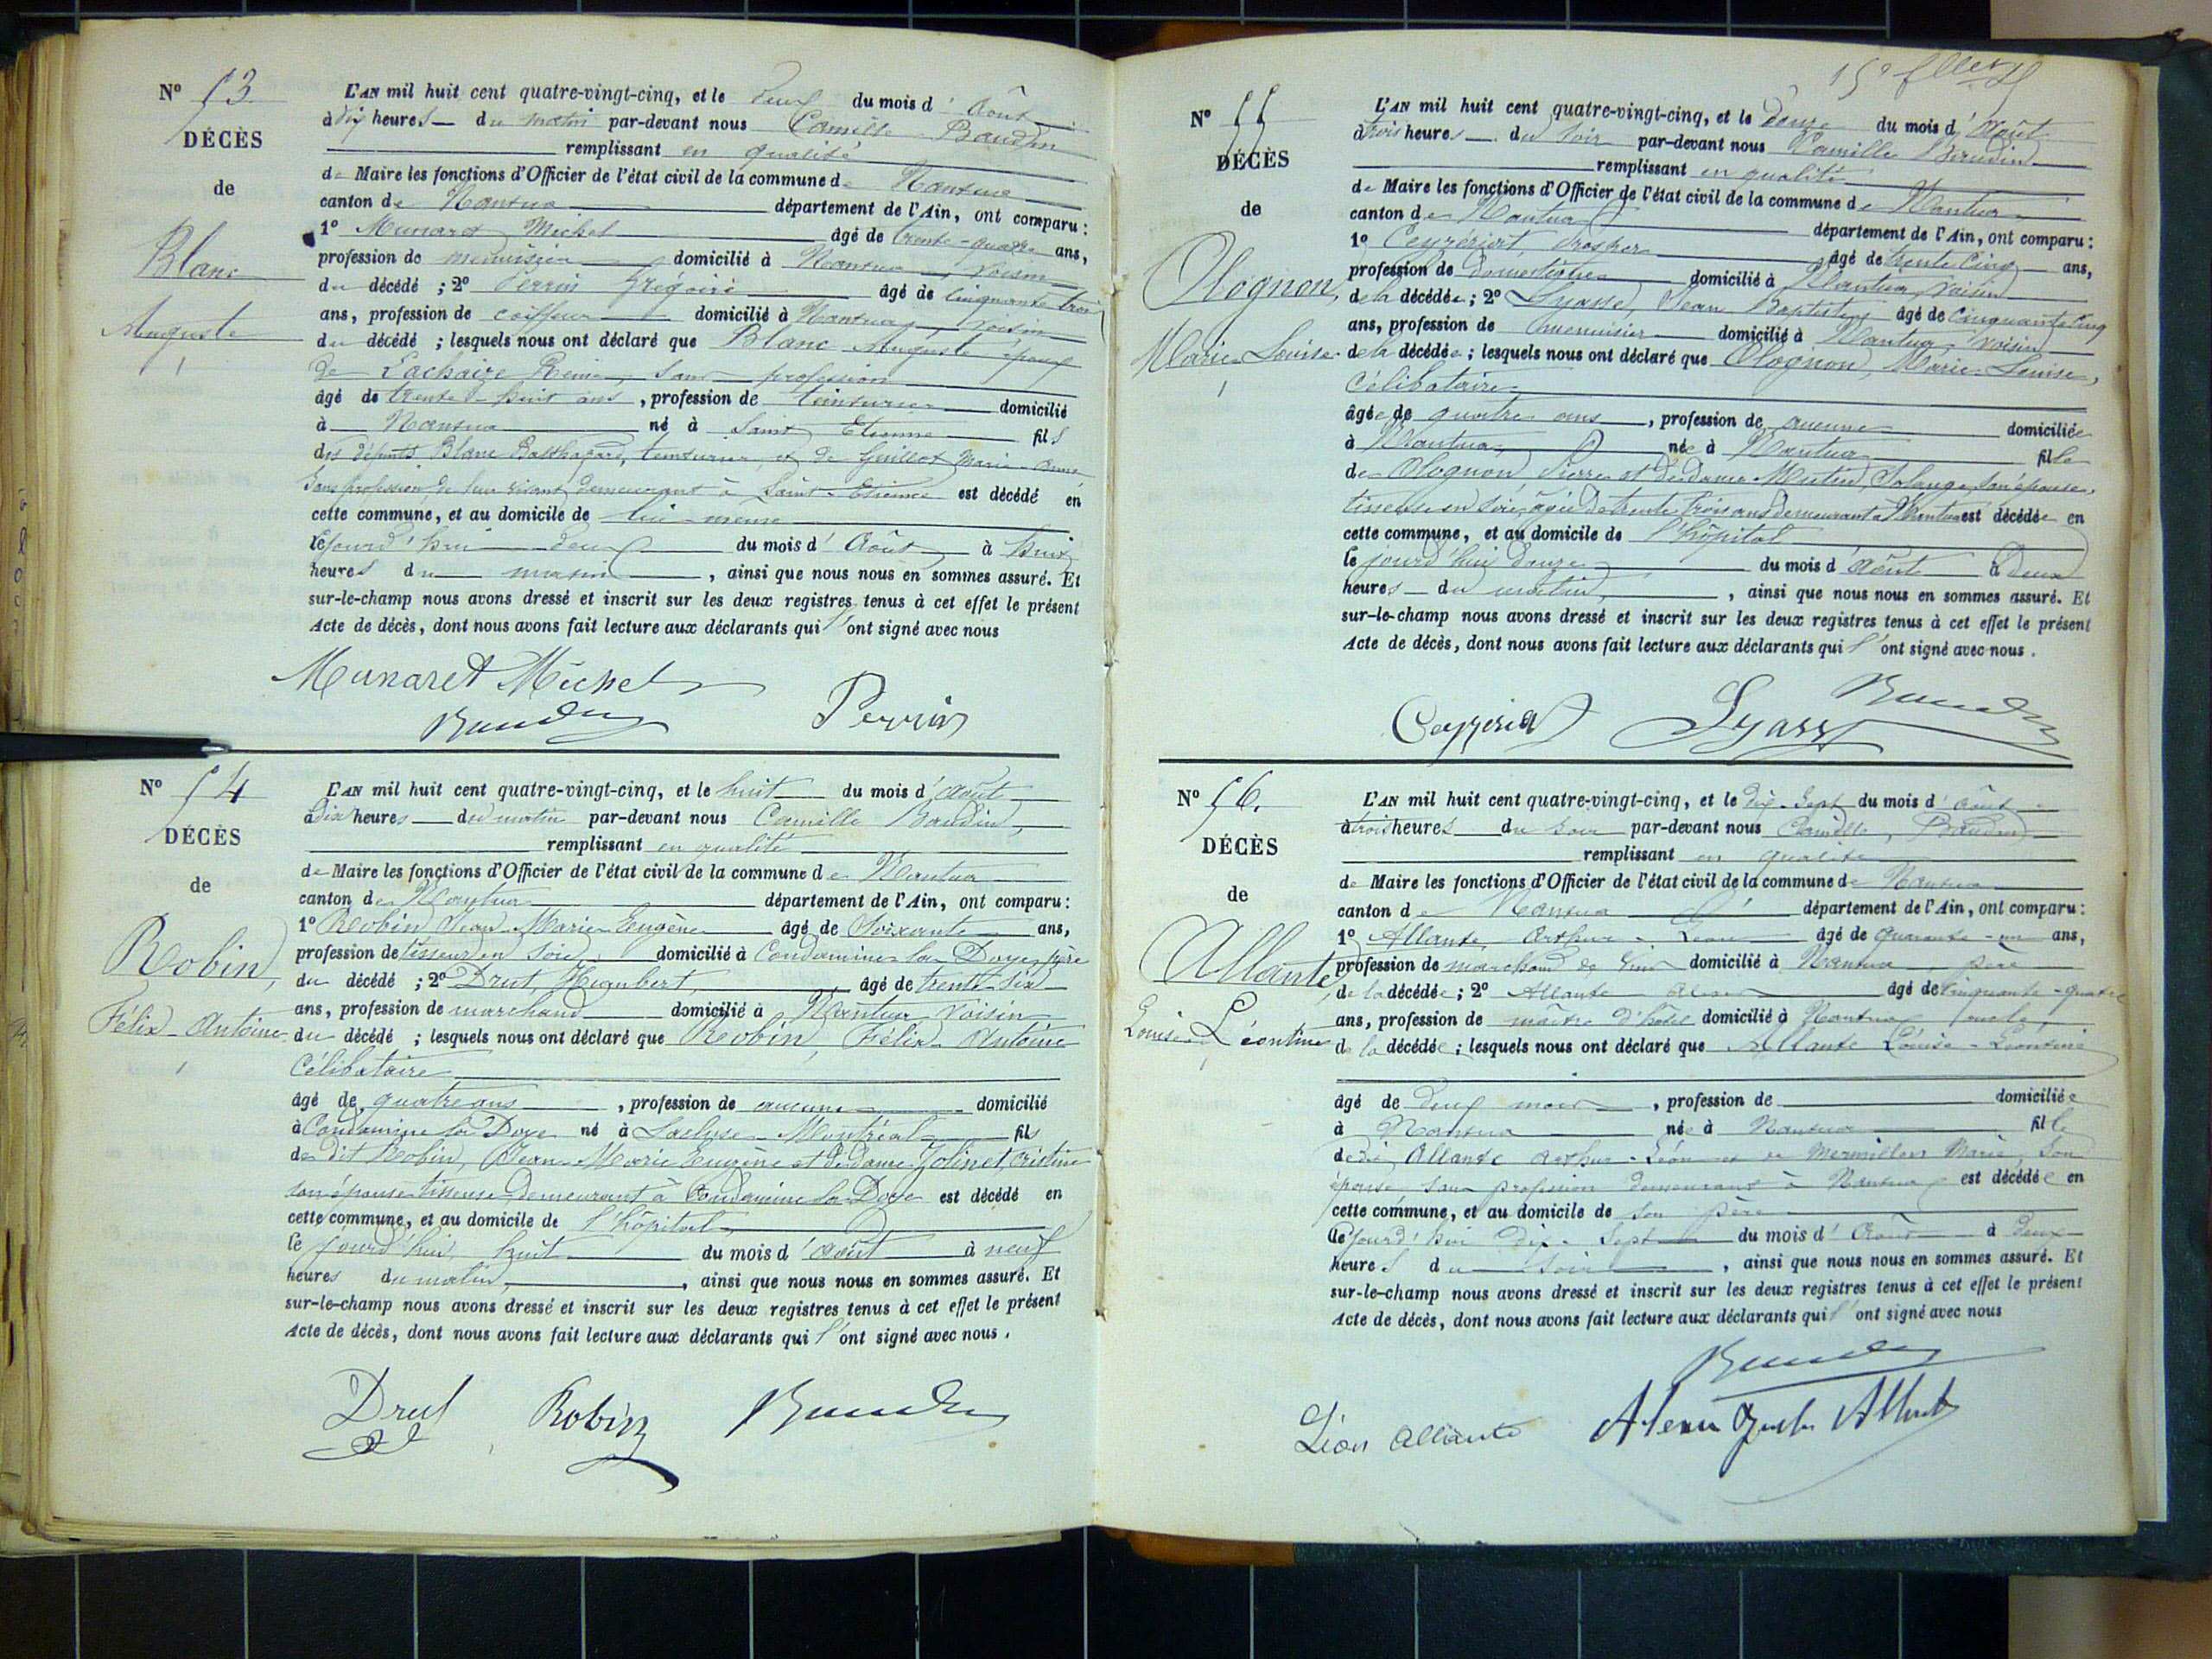 N° 53
DÉCÈS
de
Blanc
Auguste
L'AN mil huit cent quatre-vingt-cinq, et le deux du mois d'Août
à dix heures du matin par-devant nous Camille Baudin
remplissant en qualité
de Maire les fonctions d'Officier de l'état civil de la commune de Nantua
canton de Nantua département de l'Ain, ont comparu :
1° Munaret Michel âgé de trente-quatre ans,
profession de menuisier domicilié à Nantua, voisin
du décédé ; 2° Perrin Grégoire âgé de cinquante trois
ans, profession de coiffeur domicilié à Nantua, voisin
du décédé ; lesquels nous ont déclaré que Blanc Auguste époux
de Lachaize Reine, sans profession
âgé de trente-huit ans, profession de teinturier domicilié
à Nantua né à Saint Etienne fils
des défunts Blanc Balthazard, teinturier et de Guillot Marie-Anne
sans profession de leur vivant demeurant à Saint-Etienne est décédé en
cette commune, et au domicile de lui-même
le jourd'hui deux du mois d'Août à huit
heures du matin, ainsi que nous nous en sommes assuré. Et
sur-le-champ nous avons dressé et inscrit sur les deux registres tenus à cet effet le présent
Acte de décès, dont nous avons fait lecture aux déclarants qui l'ont signé avec nous
Munaret Michel
Baudin Perrin
N° 54
DÉCÈS
de
Robin,
Félix-Antoine
L'AN mil huit cent quatre-vingt-cinq, et le huit du mois d'Août
à dix heures du matin par-devant nous Camille Baudin,
remplissant en qualité
de Maire les fonctions d'Officier de l'état civil de la commune de Nantua
canton de Nantua département de l'Ain, ont comparu :
1° Robin Jean-Marie-Eugène âgé de Soixante ans,
profession de tisseur en soie, domicilié à Condamine la Doye, père
du décédé ; 2° Drut, Humbert, âgé de trente-six
ans, profession de marchand domicilié à Nantua voisin
du décédé ; lesquels nous ont déclaré que Robin, Félix-Antoine
Célibataire
âgé de quatre ans, profession de aucune domicilié
à Condamine la Doye né à Laclyse-Montréal fils
de dit Robin, Jean-Marie Eugène et de dame Jolinet, Cristine
son épouse tisseuse demeurant à Condamine la Doye est décédé en
cette commune, et au domicile de l'hôpital
le jourd'hui huit du mois d'Août à neuf
heures du matin, ainsi que nous nous en sommes assuré. Et
sur-le-champ nous avons dressé et inscrit sur les deux registres tenus à cet effet le présent
Acte de décès, dont nous avons fait lecture aux déclarants qui l'ont signé avec nous.
Drut Robin Baudin
N° 55
DÉCÈS
de
Olognon,
Marie-Louise
L'AN mil huit cent quatre-vingt-cinq, et le douze du mois d'Août
à trois heures du soir par-devant nous Camille Baudin
remplissant en qualité
de Maire les fonctions d'Officier de l'état civil de la commune de Nantua
canton de Nantua département de l'Ain, ont comparu :
1° Ceyzériat Prosper âgé de trente cinq ans,
profession de domestique domicilié à Nantua, voisin
de la décédée ; 2° Lyasse, Jean Baptiste âgé de cinquante cinq
ans, profession de menuisier domicilié à Nantua, voisin
de la décédée ; lesquels nous ont déclaré que Olognon, Marie-Louise,
Célibataire
âgée de quatre ans, profession de aucune domiciliée
à Nantua, née à Nantua fille
de Olognon, Pierre et de dame Mutin, Solange, son épouse,
tisseuse en soie, âgée de trente trois ans demeurant à Nantua est décédée en
cette commune, et au domicile de l'hôpital
le jourd'hui douze du mois d'Août à deux
heures du matin, ainsi que nous nous en sommes assuré. Et
sur-le-champ nous avons dressé et inscrit sur les deux registres tenus à cet effet le présent
Acte de décès, dont nous avons fait lecture aux déclarants qui l'ont signé avec nous.
Ceyzeriat Lyass Baudin
N° 56.
DÉCÈS
de
Allante,
Louise-Léontine
L'AN mil huit cent quatre-vingt-cinq, et le dix-sept du mois d'Août
à trois heures du soir par-devant nous Camille, Baudin
remplissant en qualité
de Maire les fonctions d'Officier de l'état civil de la commune de Nantua
canton de Nantua département de l'Ain, ont comparu :
1° Allante Arthur-Léon âgé de quarante-un ans,
profession de marchand de vins domicilié à Nantua, père
de la décédée ; 2° Allante âgé de cinquante-quatre
ans, profession de maître d'hôtel domicilié à Nantua, oncle
de la décédée ; lesquels nous ont déclaré que Allante Louise-Léontine
âgé de deux mois, profession de domiciliée
à Nantua née à Nantua fille
de dit Allante Arthur-Léon et de Mermillon Marie, son
épouse, sans profession demeurant à Nantua est décédée en
cette commune, et au domicile de son père
le jourd'hui dix-sept du mois d'Août à deux
heures du soir, ainsi que nous nous en sommes assuré. Et
sur-le-champ nous avons dressé et inscrit sur les deux registres tenus à cet effet le présent
Acte de décès, dont nous avons fait lecture aux déclarants qui l'ont signé avec nous
Baudin
Léon Allante